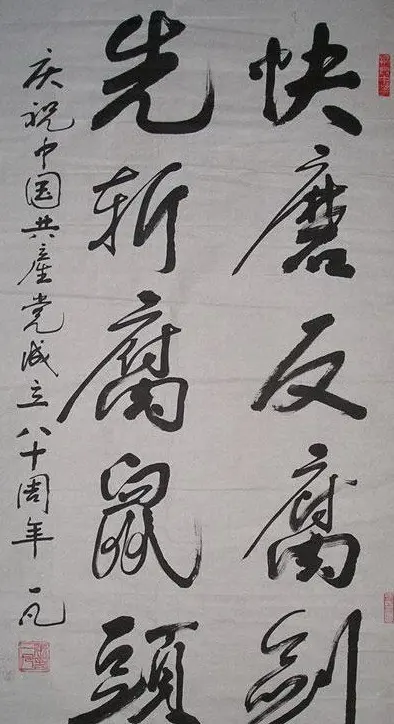 快磨反腐剑
先斩腐鼠頭
庆祝中国共產党成立八十周年
一凡